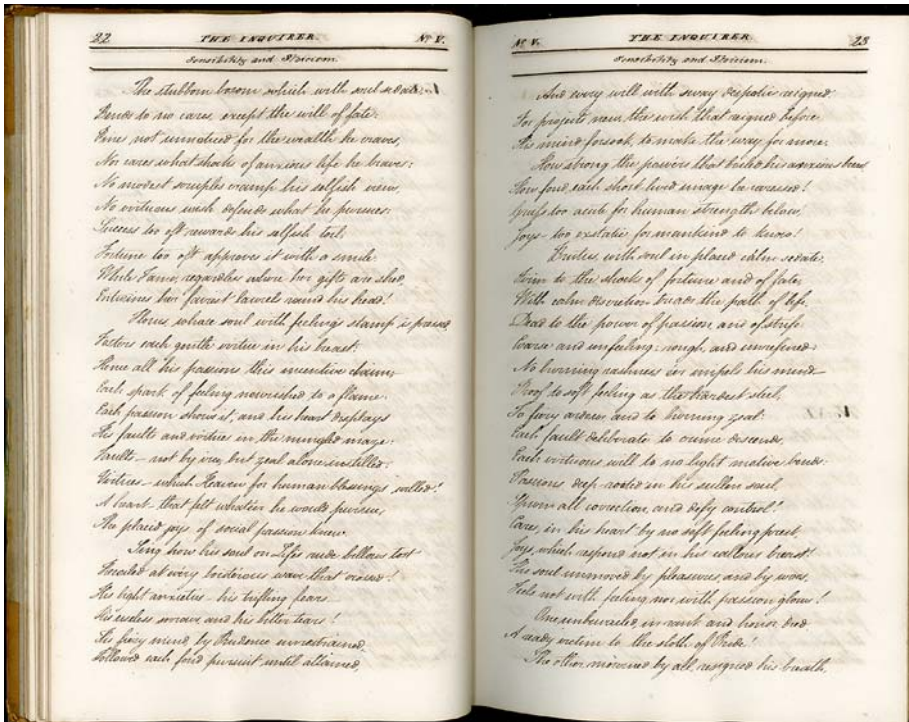 22 THE INQUIRER. No V.
Sensibility and Stoicism.
The stubborn bosom which with soul sedate,
Bends to no cares except the will of fate:
Pines not unnoticed for the wealth he craves,
Nor cares what shocks of anxious life he braves:
No modest scruples cramp his selfish view,
No virtuous wish defends what he pursues:
Success too oft rewards his selfish toil,
Fortune too oft approves it with a smile
While Fame, regardless where her gifts are shed,
Entwines her fairest laurels round his head!
whose soul with feeling's stamp is pressed
Fosters each gentle virtue in his breast.
Hence all his passions this incentive claim,
Each spark of feeling nourished to a flame.
Each passion shows it, and his heart displays
His faults and virtues in the mingled maze:
Faults – not by ire, but zeal alone instilled:
Virtues – which Heaven for human blessings willed!
A heart – that felt whate'er he would pursue,
The placid joys of social passion knew.
Sing how his soul on Life's rude billows tost
Recoiled at every boisterous wave that crossed!
His light anxieties – his trifling fears
His endless sorrow and his bitter tears!
His fiery mind, by Prudence unrestrained,
Followed each fond pursuit until attained,
No V. THE INQUIRER. 23
Sensibility and Stoicism.
And every will with sway despotic reigned:
For projects new, the wish that reigned before
His mind forsook, to make the way for more.
How strong the powers that his anxious breast
How fond, each short lived image he caressed!
Griefs too acute for human strength below!
Joys – too exstatic for mankind to know!
with soul in placid calm sedate:
Firm to the shocks of fortune and of fate,
With calm discretion the path of life,
Dead to the power of passion, and of strife
Coarse and unfeeling: rough, and unrefined:
No burning rashness impels his mind –
Proof to soft feeling as the hardest steel,
To fiery ardour, and to burning zeal:
Each fault deliberate to crime descends,
Each virtuous will to no light motive bends:
Passions deep rooted in his sullen soul,
Spurn all correction, and defy control!
Cares, in his heart by no soft feeling prest,
Joys, which respond not in his callous breast!
His soul unmoved by pleasures, and by woes,
Feels not with feeling nor with passion glows!
One unbewailed, in rank and honor died
A ready victim to the sloth of Pride!
The other mourned by all, resigned his breath,